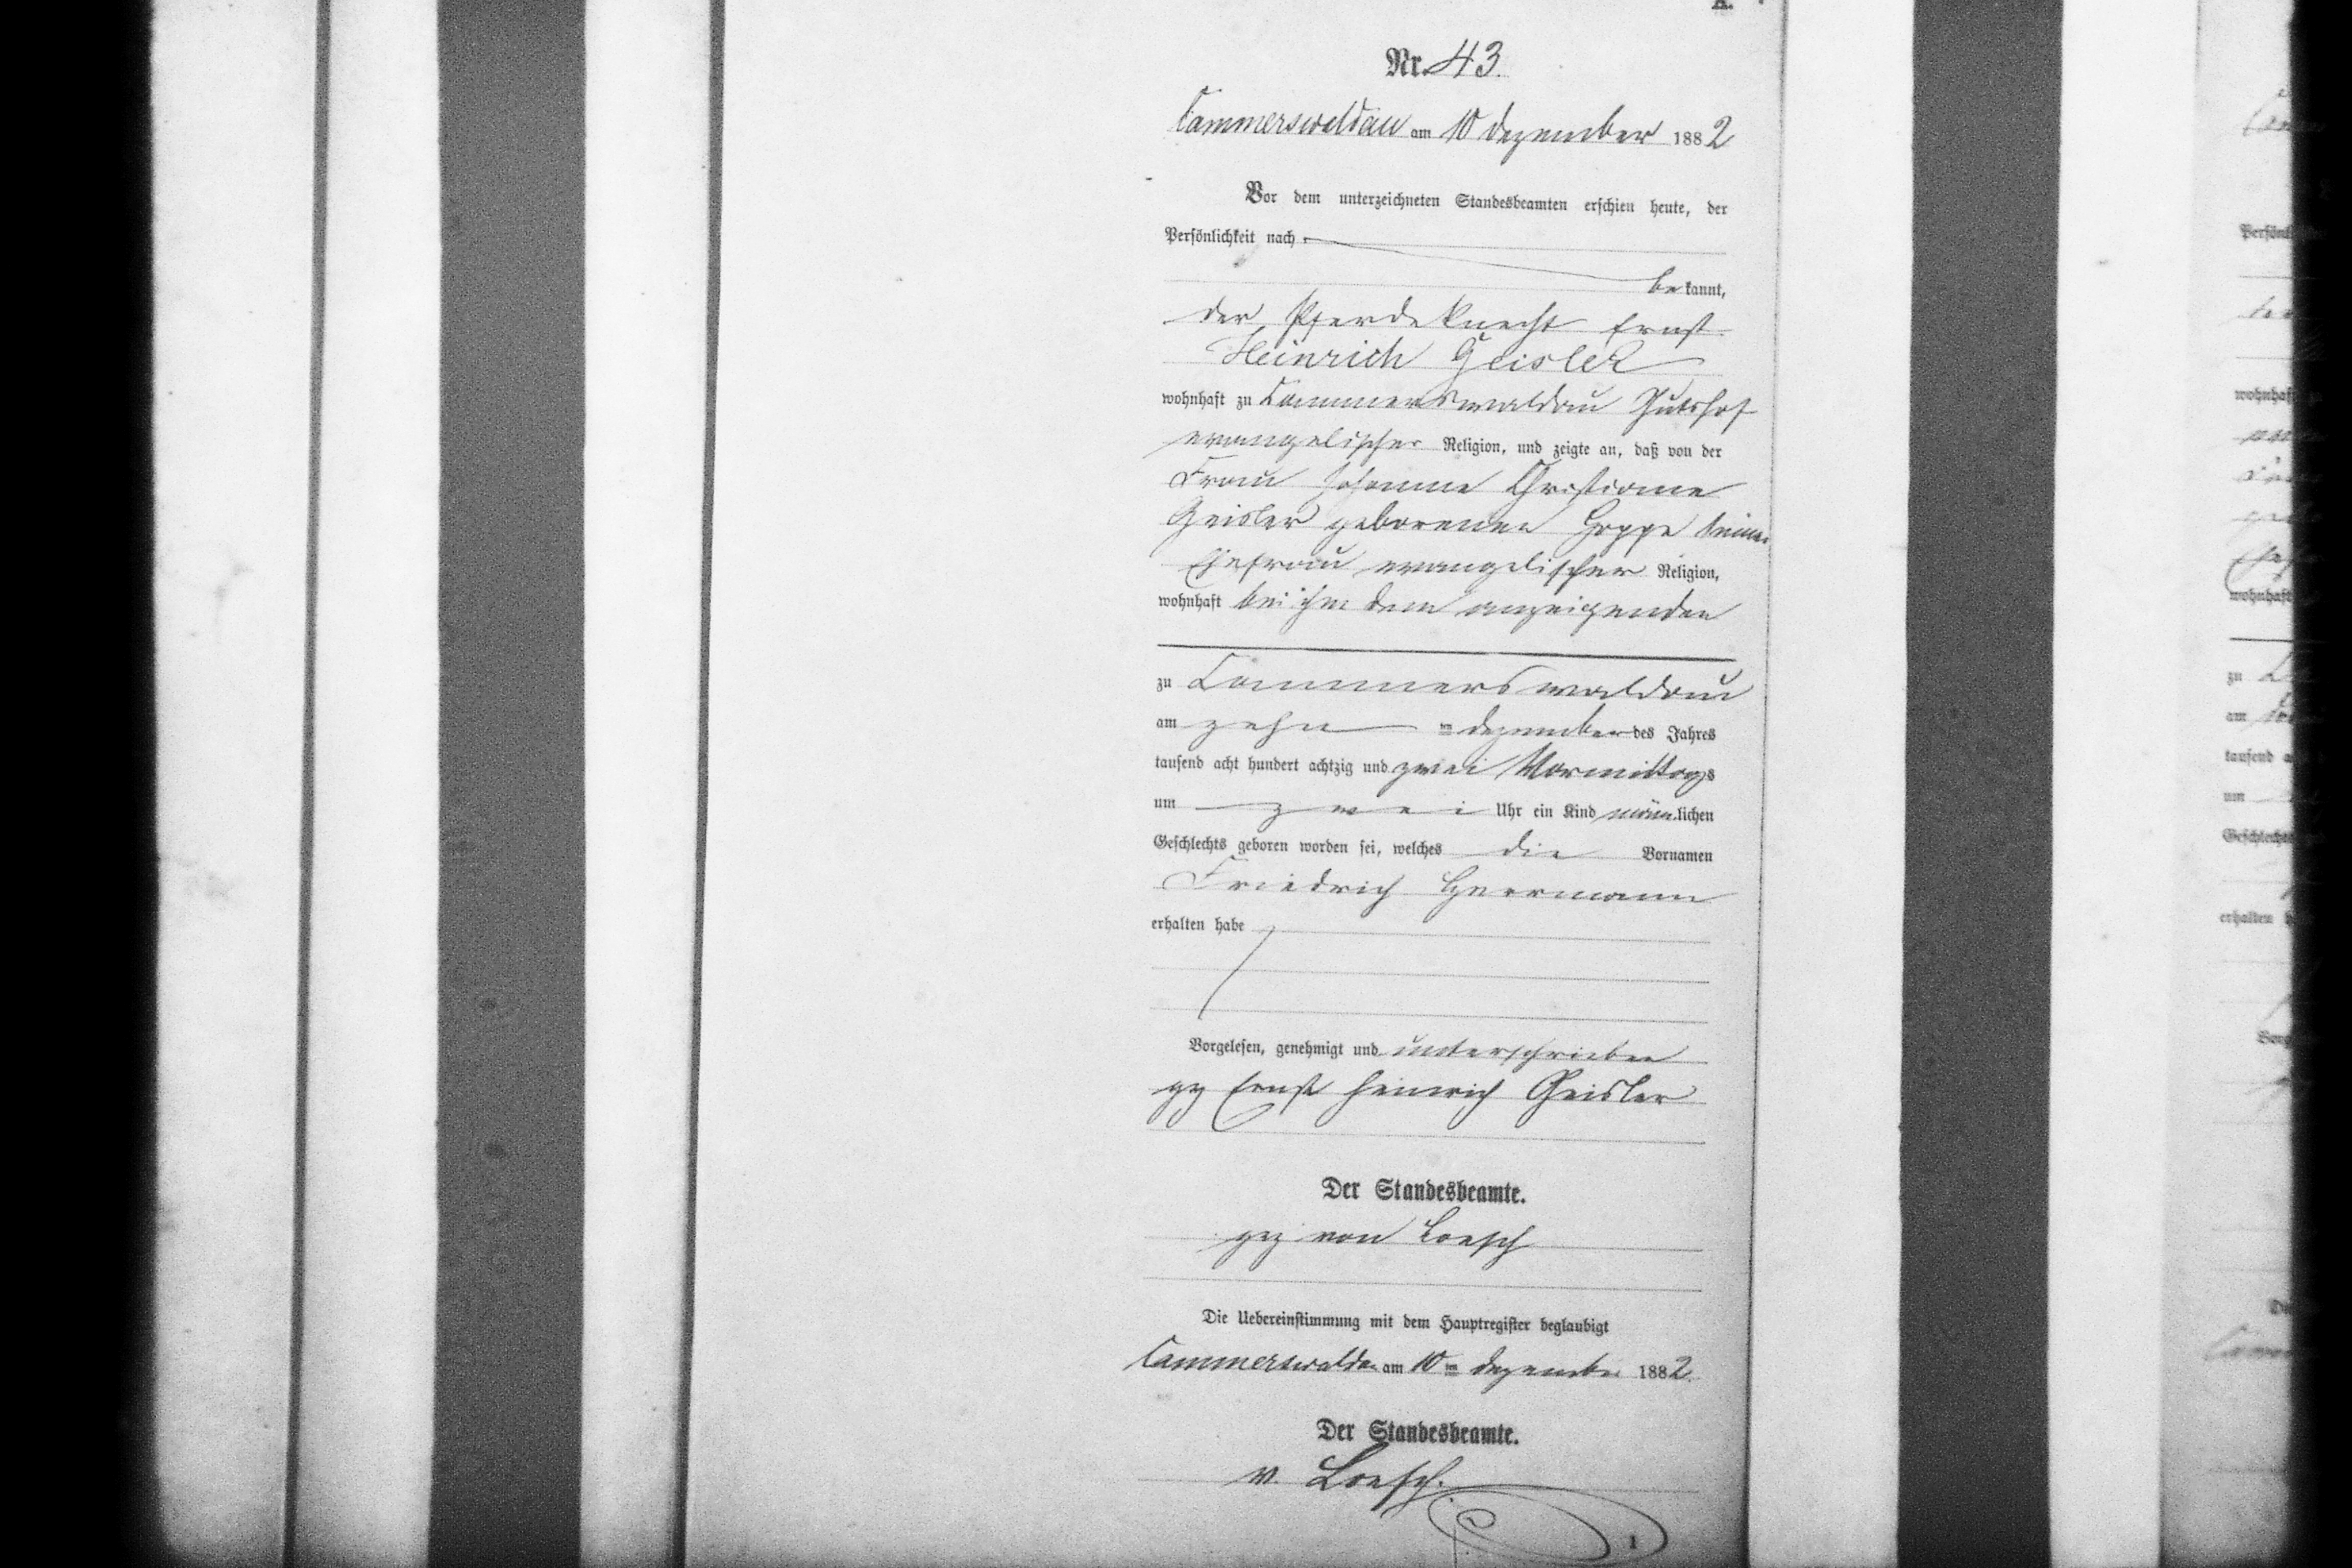 A.
Nr. 43.
Cammerswaldau am 10 Dezember 1882
Vor dem unterzeichneten Standesbeamten erschien heute, der
Persönlichkeit nach
bekannt,
der Pferdeknecht Ernst
Heinrich Geisler
wohnhaft zu Cammerswaldau Gutshof
evangelischer Religion, und zeigte an, daß von der
Frau Johanne Christiane
Geisler geborenen Hoppe seiner
Ehefrau evangelischer Religion,
wohnhaft bei ihm dem anzeigenden
zu Cammerswaldau
am zehn ten Dezember des Jahres
tausend acht hundert achtzig und zwei Vormittags
um zwei Uhr ein Kind männlichen
Geschlechts geboren worden sei, welches die Vornamen
Friedrich Herrmann
erhalten habe
Vorgelesen, genehmigt und unterschrieben
gez Ernst Heinrich Geisler
Der Standesbeamte.
gez von Loesch
Die Uebereinstimmung mit dem Hauptregister beglaubigt
Cammerswaldau am 10 ten Dezember 1882.
Der Standesbeamte.
v. Loesch.
1